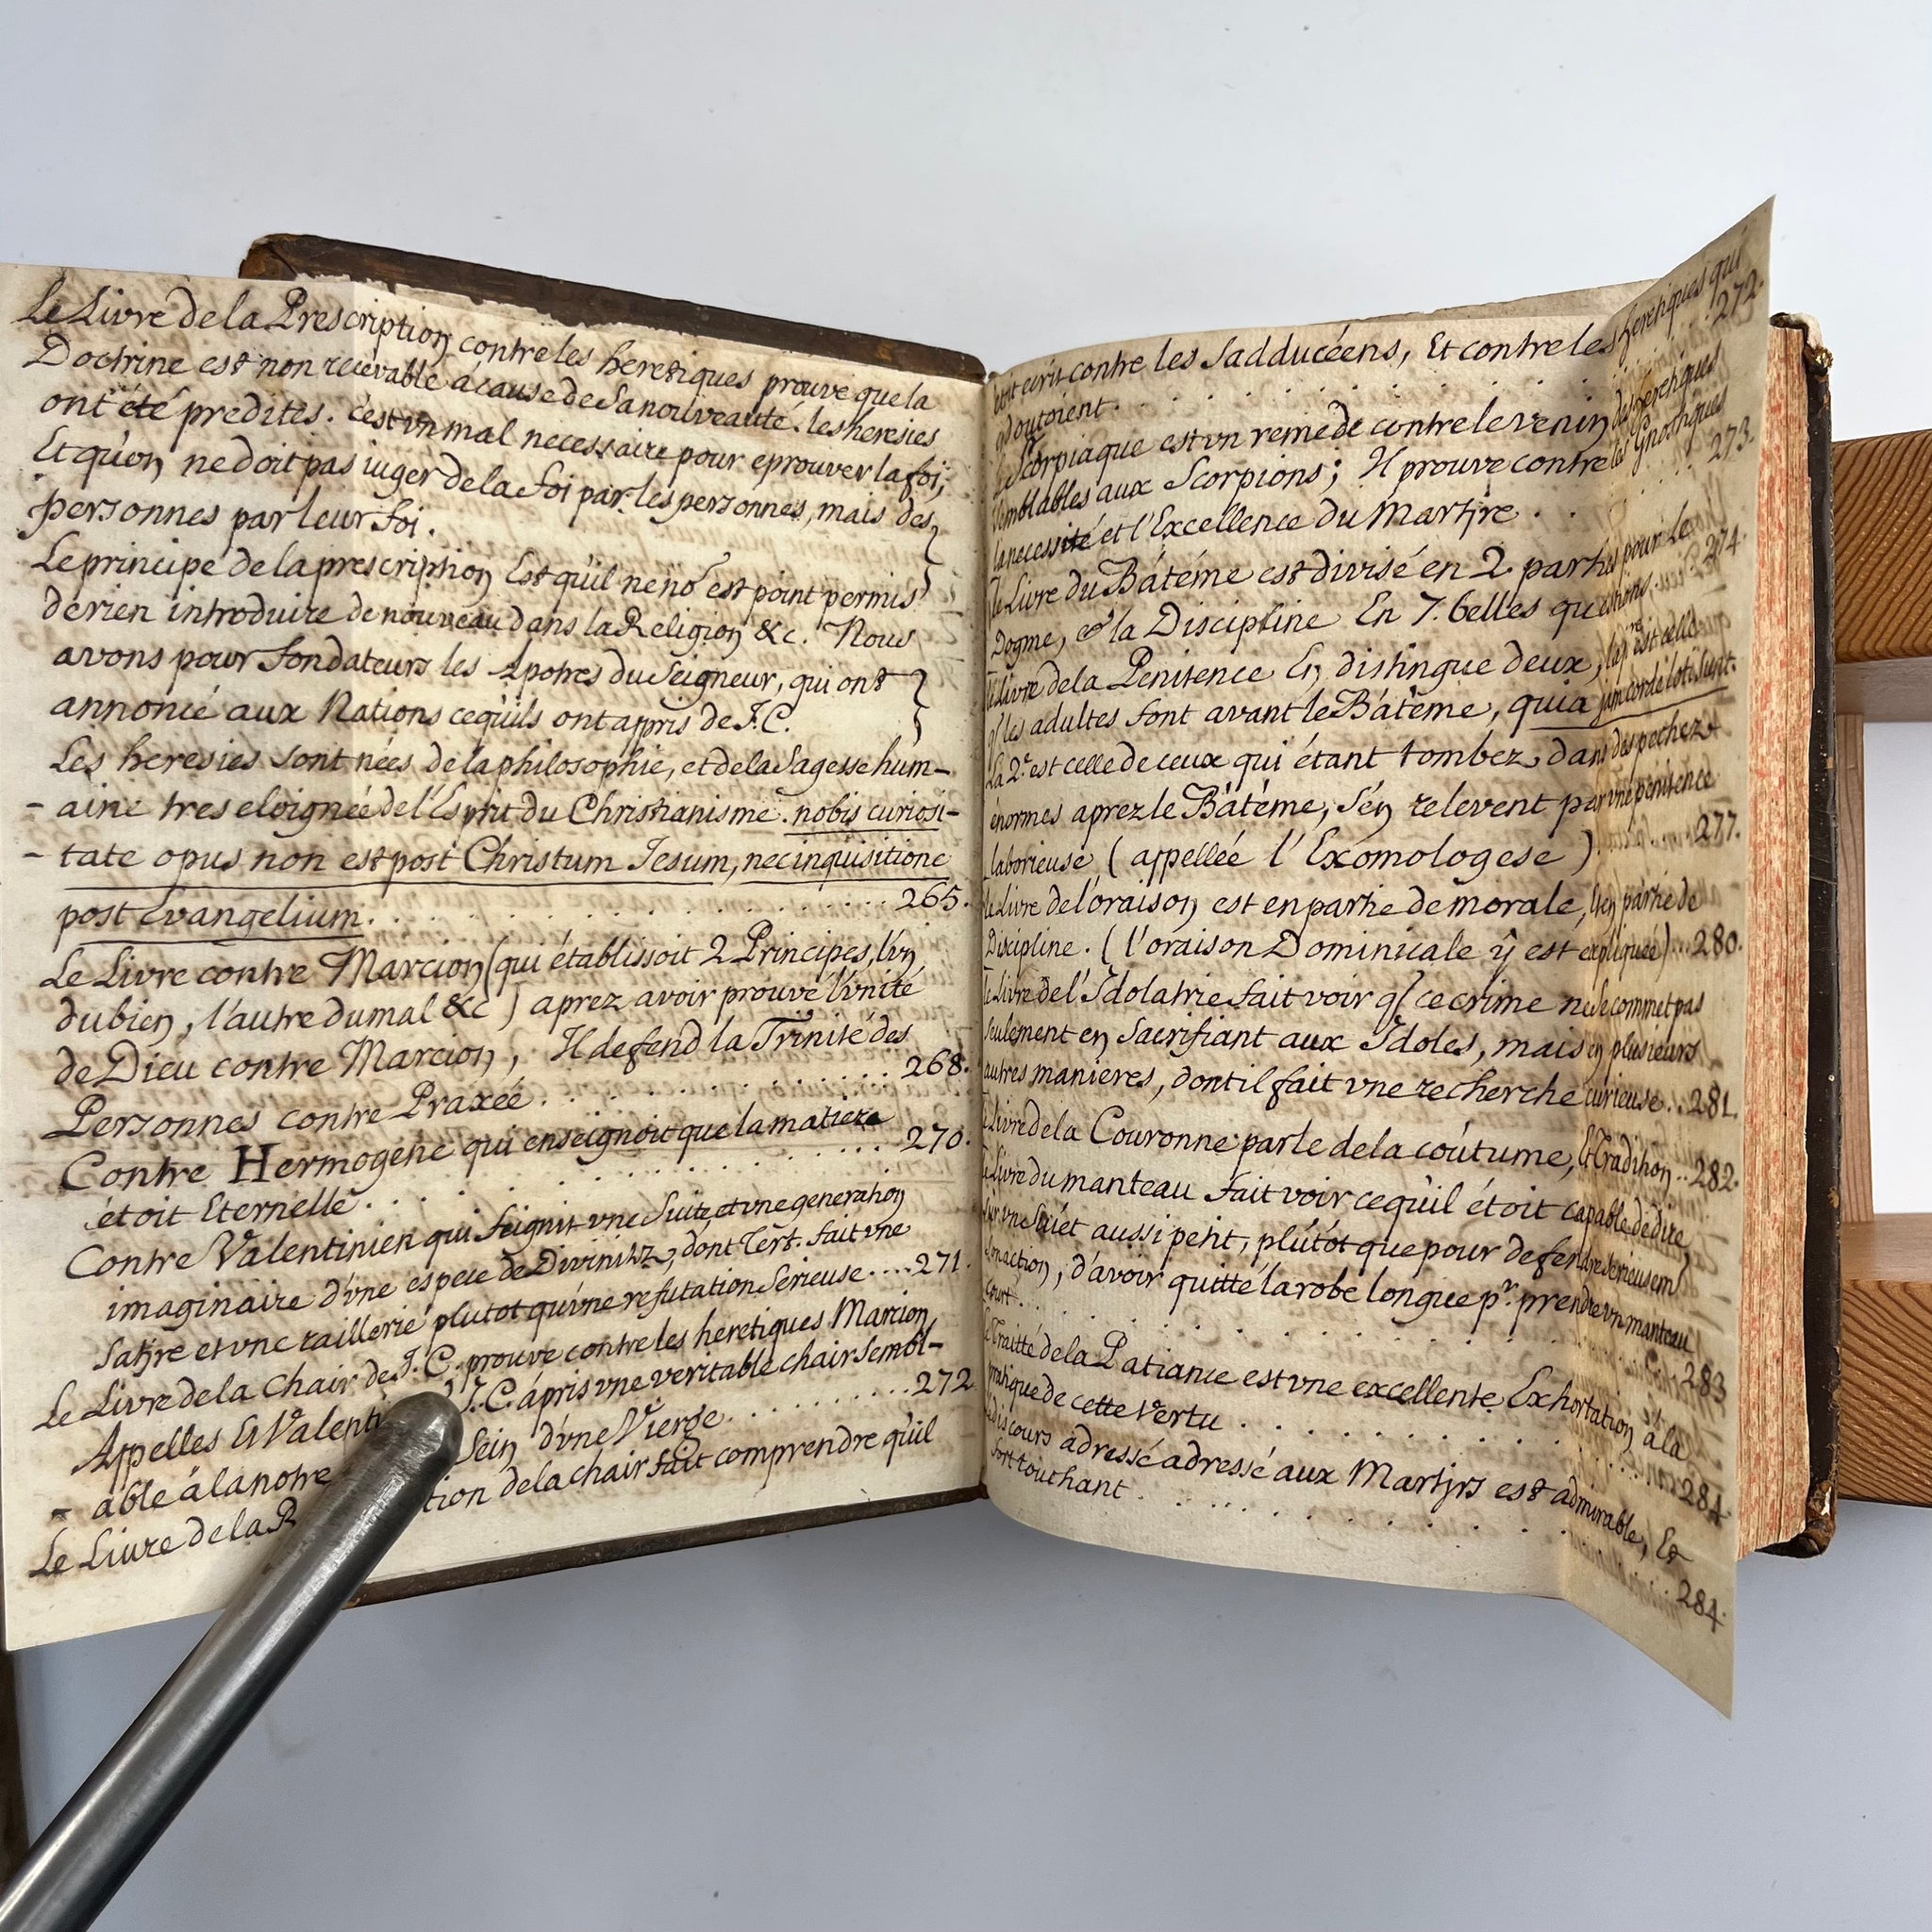 Le Livre de la Prescription contre les heretiques prouve que la
Doctrine est non recevable á cause de Sa nouveauté. les heresies
ont été predites. c'est vn mal necessaire pour eprouver la foi;
Et qu'on ne doit pas iuger de la foi par les personnes, mais des
personnes par leur foi.
Le principe de la prescription Est qu'il ne est point permis
de rien introduire de nouveau dans la Religion &c. Nous
avons pour fondateurs les Apotres du Seigneur, qui ont
annoncé aux Nations ce qu'ils ont appris de J.C.
Les heresies sont nées de la philosophie, et de la Sagesse hum-
- aine tres eloignée de l'Esprit du Christianisme. nobis curiosi-
- tate opus non est post Christum Jesum, nec inquisitione
post Evangelium. 265.
Le Livre contre Marcion (qui établissoit 2 Principes, l'vn
du bien, l'autre du mal &c) aprez avoir prouvé l'vnité
de Dieu contre Marcion, Il defend la Trinité des
Personnes contre Praxée. 268.
Contre Hermogene qui enseignoit que la matiere
étoit Eternelle. 270.
Contre Valentinien qui feignit vne Suite, et vne generation
imaginaire d'vne espece de Divinitez, dont Tert. fait vne
Satyre et vne raillerie plutot qu'vne refutation Serieuse....271.
Le Livre de la Chair de J.C. prouve contre les heretiques Marcion
Appelles Et Valenti J.C. á pris vne veritable chair Sembl-
- able á la notre Sein d'vne Vierge. 272
Le Livre de la R tion de la chair fait comprendre qu'il
étoit ecrit contre les Sadducéens, Et contre les heretiques qui
doutoient. 272.
Scorpiaque est vn remede contre le venin des heretiques
Semblables aux Scorpions; Il prouve contre les Gnostiques
la necessité et l'Excellence du Martyre. 273.
le Livre du Bátéme est divisé en 2 parties pour Le
Dogme, & la Discipline En 7. belles questions. 274.
le livre de la Penitence En distingue deux, la pre est celle
q les adultes font avant le Bátéme, quia jam corde loti sunt.
La 2e est celle de ceux qui étant tombez, dans des pechez
énormes aprez le Bátéme, S'en relevent par vne penitence
laborieuse (appellée l'Exomologese) 277.
le Livre de l'oraison est en partie de morale, Et en partie de
Discipline. (l'oraison Dominicale ÿ est expliquée) 280.
le Livre de l'Idolatrie fait voir q ce crime ne Se commet pas
Seulement en Sacrifiant aux Idoles, mais en plusieurs
autres manieres, dont il fait vne recherche curieuse. 281.
le Livre de la Couronne parle de la coútume, & Tradition. 282.
le Livre du manteau fait voir ce qu'il étoit capable de dire
Sur vn Suiet aussi petit, plútót que pour defendre Serieusemt
Son action, d'avoir quitté la robe longue pr. prendre vn manteau
court. 283
le Traitté de la Patiance est vne excellente Exhortation á la
pratique de cette Vertu 284.
le discours adressé adressé aux Martyrs est admirable, Et
fort touchant. 284.